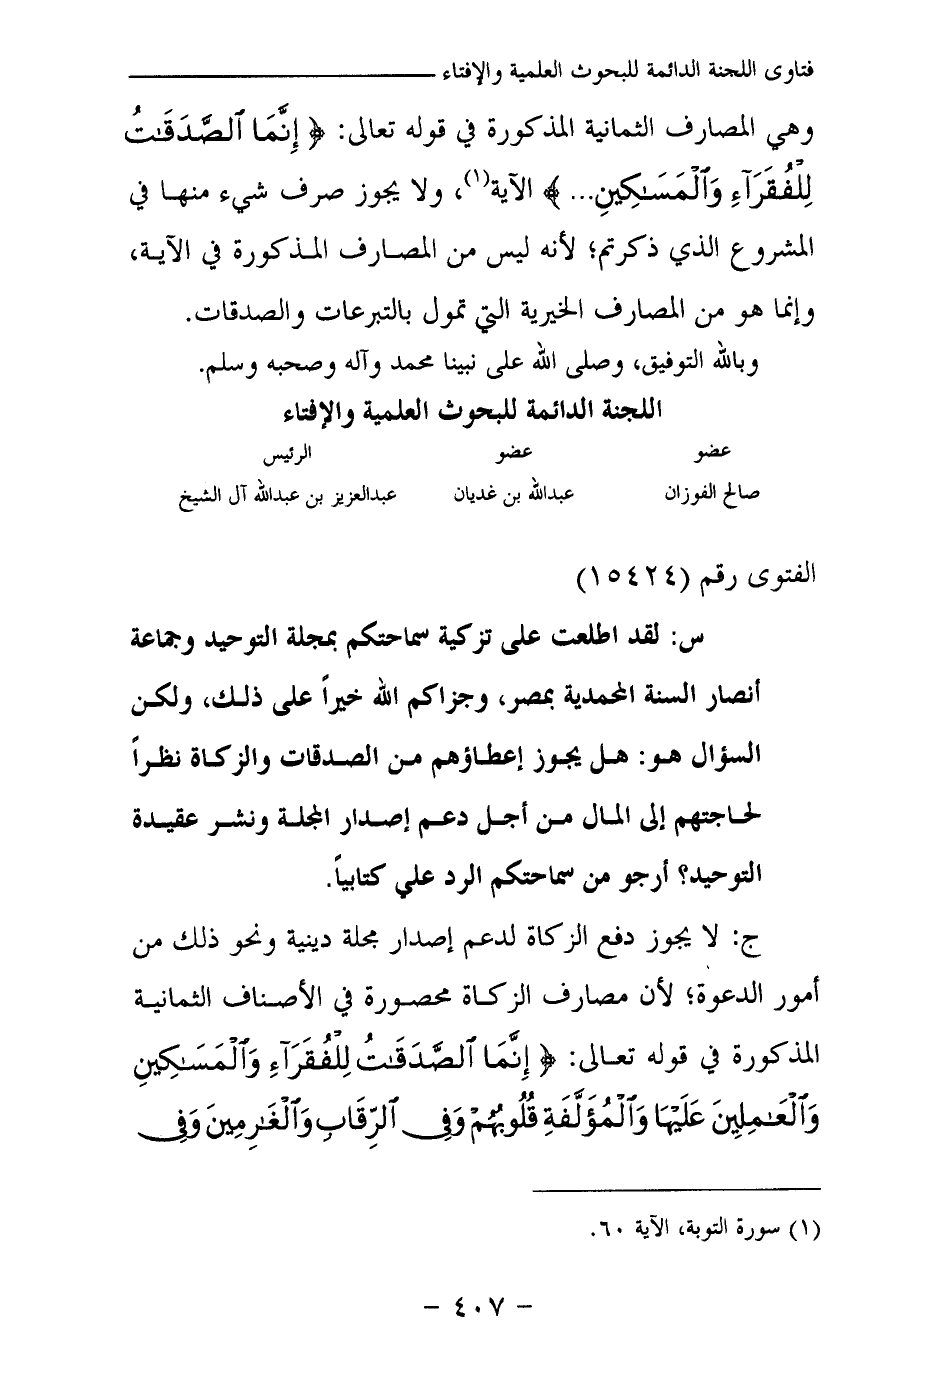 فتاوى اللجنة الدائمة للبحوث العلمية والإفتاء
وهي المصارف الثمانية المذكورة في قوله تعالى: ﴿ إِنَّمَا ٱلصَّدَقَـٰتُ
لِلْفُقَرَآءِ وَٱلْمَسَـٰكِينِ... ﴾ الآية(١)، ولا يجوز صرف شيء منها في
المشروع الذي ذكرتم؛ لأنه ليس من المصارف المذكورة في الآية،
وإنما هو من المصارف الخيرية التي تمول بالتبرعات والصدقات.
وبالله التوفيق، وصلى الله على نبينا محمد وآله وصحبه وسلم.
اللجنة الدائمة للبحوث العلمية والإفتاء
عضو عضو الرئيس
صالح الفوزان عبدالله بن غديان عبدالعزيز بن عبدالله آل الشيخ
الفتوى رقم (١٥٤٢٤)
س: لقد اطلعت على تزكية سماحتكم بمجلة التوحيد وجماعة
أنصار السنة المحمدية بمصر، وجزاكم الله خيراً على ذلك، ولكن
السؤال هو: هل يجوز إعطاؤهم من الصدقات والزكاة نظراً
لحاجتهم إلى المال من أجل دعم إصدار المجلة ونشر عقيدة
التوحيد؟ أرجو من سماحتكم الرد علي كتابياً.
ج: لا يجوز دفع الزكاة لدعم إصدار مجلة دينية ونحو ذلك من
أمور الدعوة؛ لأن مصارف الزكاة محصورة في الأصناف الثمانية
المذكورة في قوله تعالى: ﴿ إِنَّمَا ٱلصَّدَقَـٰتُ لِلْفُقَرَآءِ وَٱلْمَسَـٰكِينِ
وَٱلْعَـٰمِلِينَ عَلَيْهَا وَٱلْمُؤَلَّفَةِ قُلُوبُهُمْ وَفِى ٱلرِّقَابِ وَٱلْغَـٰرِمِينَ وَفِى
(١) سورة التوبة، الآية ٦٠.
- ٤٠٧ -